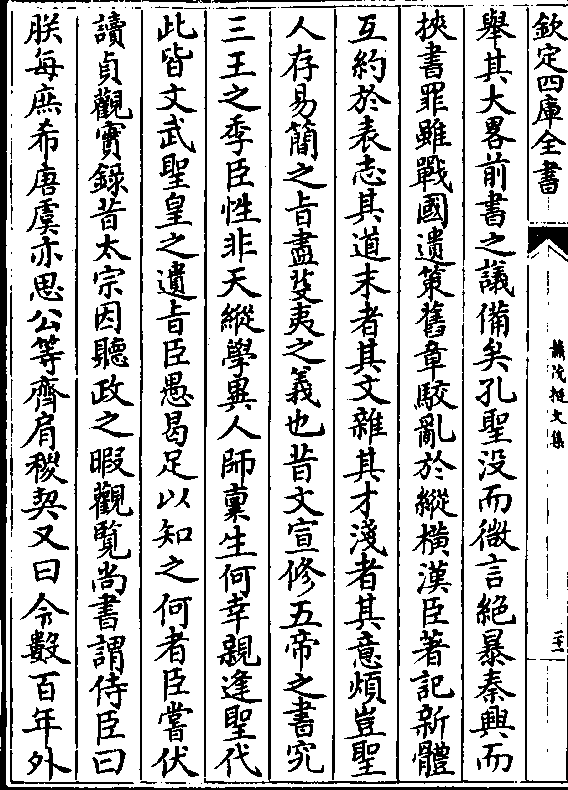 欽定四庫全書
舉其大畧前書之議備矣孔聖没而微言絶暴秦興而
挾書罪雖戰國遺策舊章駮亂於縱横漢臣著記新體
互約於表志其道末者其文雜其才淺者其意煩豈聖
人存易簡之旨盡芟夷之義也昔文宣修五帝之書究
三王之季臣性非天縱學異人師稟生何幸親逢聖代
此皆文武聖皇之遺旨臣愚曷足以知之何者臣嘗伏
讀貞觀實錄昔太宗因聽政之暇觀覽尚書謂侍臣曰
朕每庶希唐虞亦思公等齊肩稷契又曰令數百年外
文集